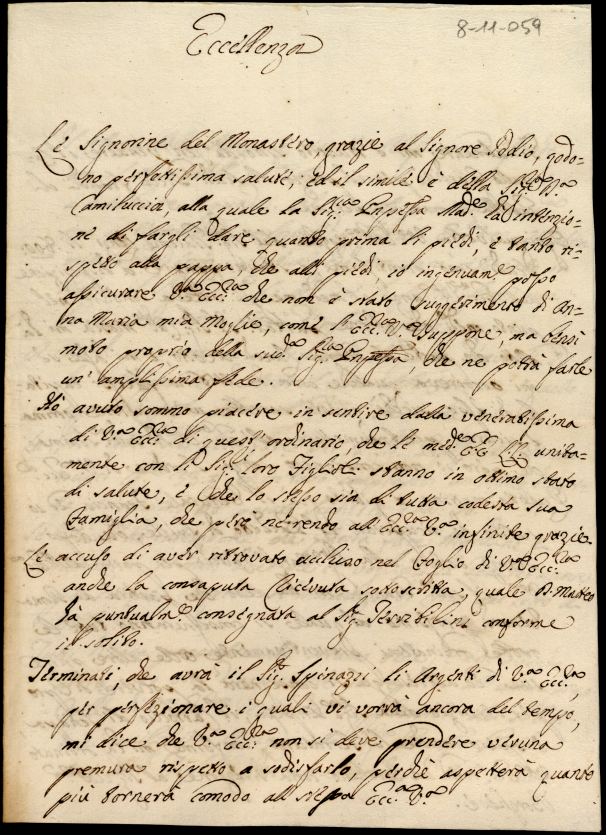 8-11-059
Eccellenza
Le Signorine del Monastero, grazie al Signore Iddio, godo-
no perfettissima salute, ed il simile è della Sig.ra D.a
Camiluccia, alla quale la Sig.ra Mad.e hà intenzio-
ne di fargli dare quanto prima li piedi, e tanto ri-
spetto alla pappa, che alli piedi io ingenuam.e posso
assicurare V.a Ecc.za che non è stato suggerimento di An-
na Maria mia Moglie, come l'Ecc.za V.a suppone, ma bensì
moto proprio della sud.a Sig.ra, che ne potrà farle
un' amplissima fede.
Hò avuto sommo piacere in sentire dalla veneratissima
di V.a Ecc.za di quest' ordinario, che le med.e EE. LL. unita-
mente con li Sig.ri loro Figlioli stanno in ottimo stato
di salute, e che lo stesso sia di tutta codesta sua
Famiglia, che però ne rendo all' Ecc.za V.a infinite grazie.
Le accuso di aver ritrovato accluso nel Foglio di V.a Ecc.za
anche la consaputa Ricevuta sottoscritta, quale D. Matteo
hà puntualm.e consegnata al Sig. Terribilini conforme
il solito.
Terminati, che avrà il Sig.r Spinazzi li Argenti di V.a Ecc.za,
per perfezionare i quali vi vorrà ancora del tempo,
mi dice che V.a Ecc.za non si deve prendere veruna
premura rispetto a sodisfarlo, perchè aspetterà quanto
più tornerà comodo all' istessa Ecc.za V.a